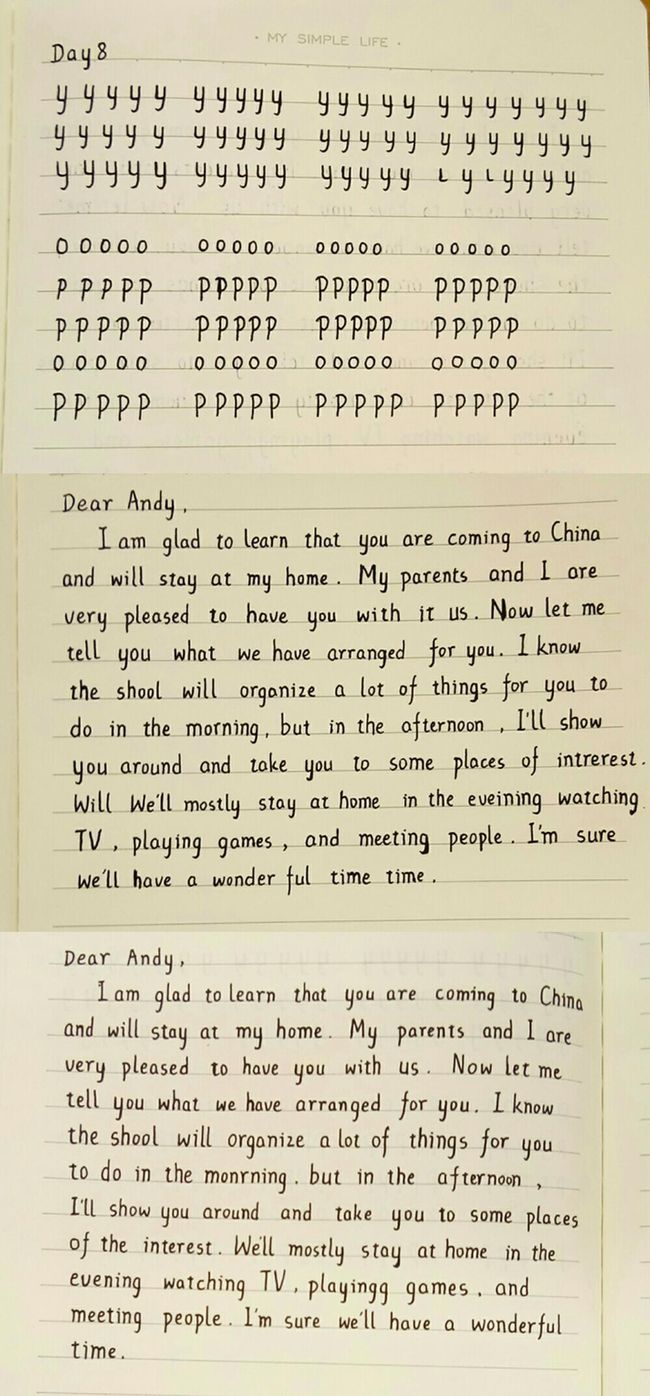 · MY SIMPLE LIFE ·
Day 8
y y y y y y y y y y y y y y y y y y y y y y
y y y y y y y y y y y y y y y y y y y y y y
y y y y y y y y y y y y y y y L y L y y y y
o o o o o o o o o o o o o o o o o o o o
p p p p p p p p p p p p p p p p p p p p
p p p p p p p p p p p p p p p p p p p p
o o o o o o o o o o o o o o o o o o o o
p p p p p p p p p p p p p p p p p p p p
Dear Andy,
I am glad to learn that you are coming to China
and will stay at my home. My parents and I are
very pleased to have you with it us. Now let me
tell you what we have arranged for you. I know
the shool will organize a lot of things for you to
do in the morning, but in the afternoon, I'll show
you around and take you to some places of intrerest.
Will We'll mostly stay at home in the eveining watching
TV, playing games, and meeting people. I'm sure
we'll have a wonder ful time time.
Dear Andy,
I am glad to learn that you are coming to China
and will stay at my home. My parents and I are
very pleased to have you with us. Now let me
tell you what we have arranged for you. I know
the shool will organize a lot of things for you
to do in the monrning. but in the afternoon,
I'll show you around and take you to some places
of the interest. We'll mostly stay at home in the
evening watching TV, playingg games, and
meeting people. I'm sure we'll have a wonderful
time.